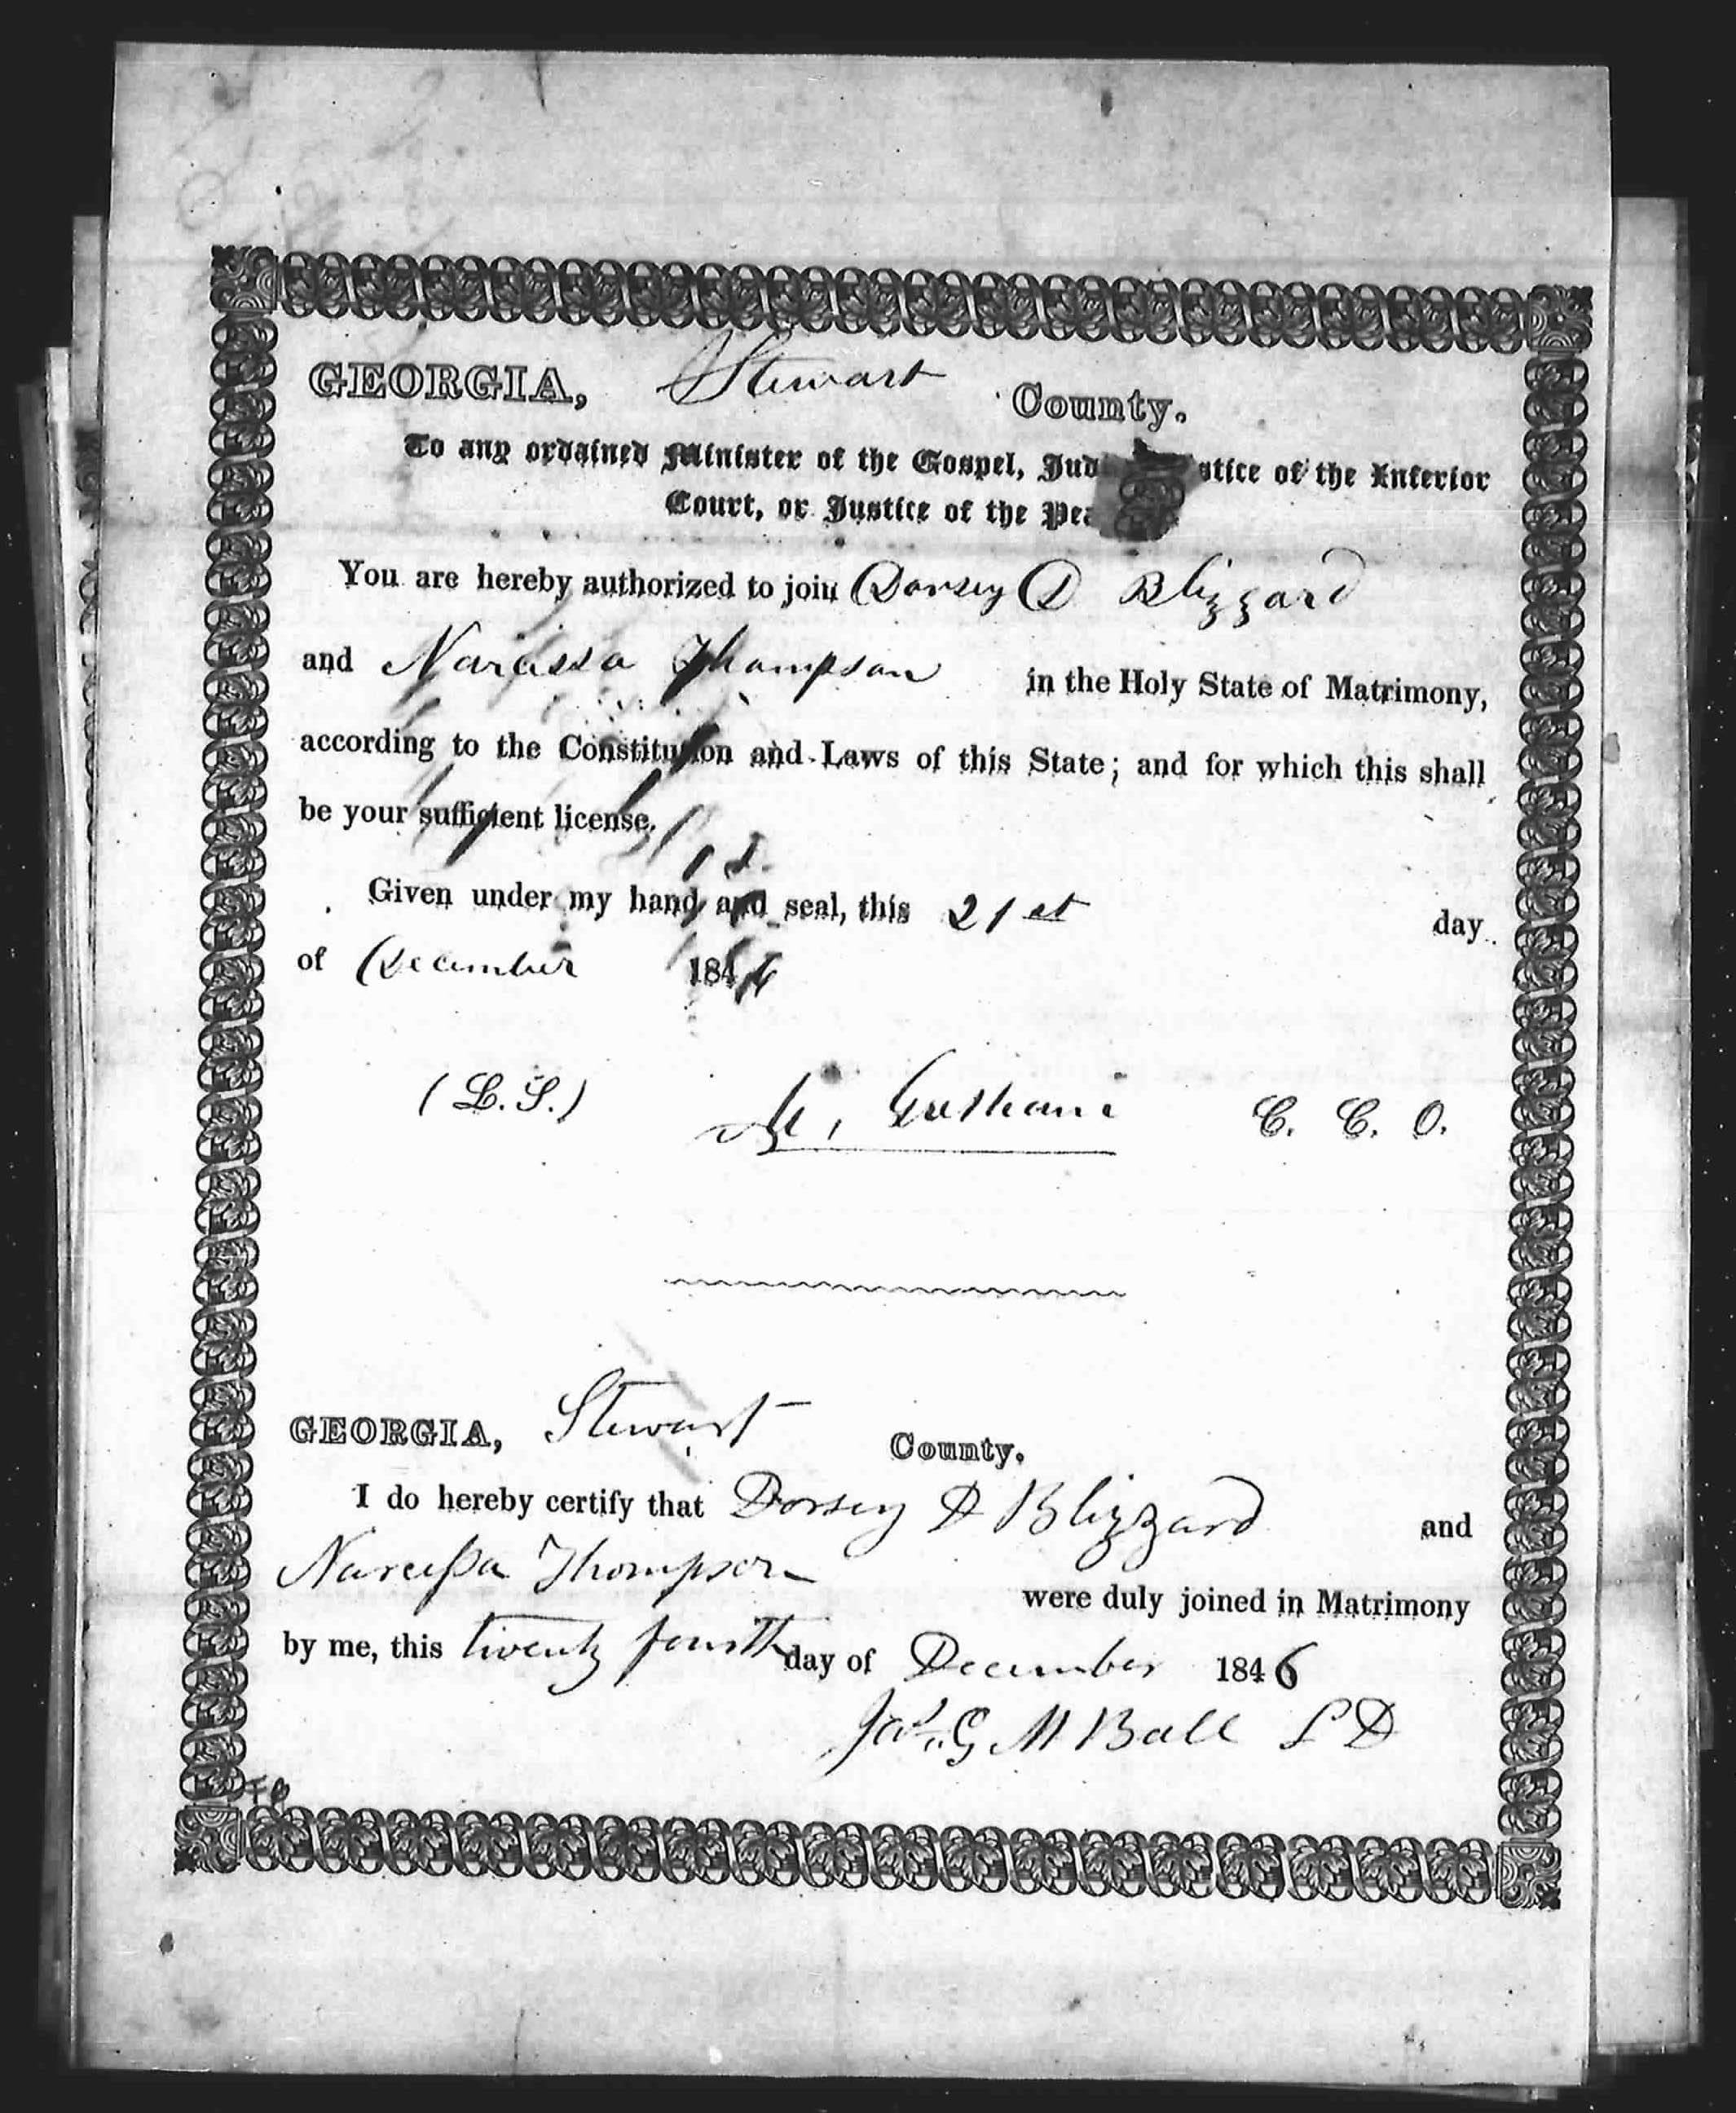 GEORGIA, Stewart County.
To any ordained Minister of the Gospel, Jud stice of the Inferior
Court, or Justice of the Pea
You are hereby authorized to join Dorsey D Blizzard
and Narcissa Thompson in the Holy State of Matrimony,
according to the Constitution and Laws of this State; and for which this shall
be your sufficient license.
Given under my hand and seal, this 21st day
of December 1846
(L.S.) C. C. O.
GEORGIA, Stewart County.
I do hereby certify that Dorsey D Blizzard and
Narcissa Thompson were duly joined in Matrimony
by me, this twenty fourth day of December 1846
Jas. G M Ball L D